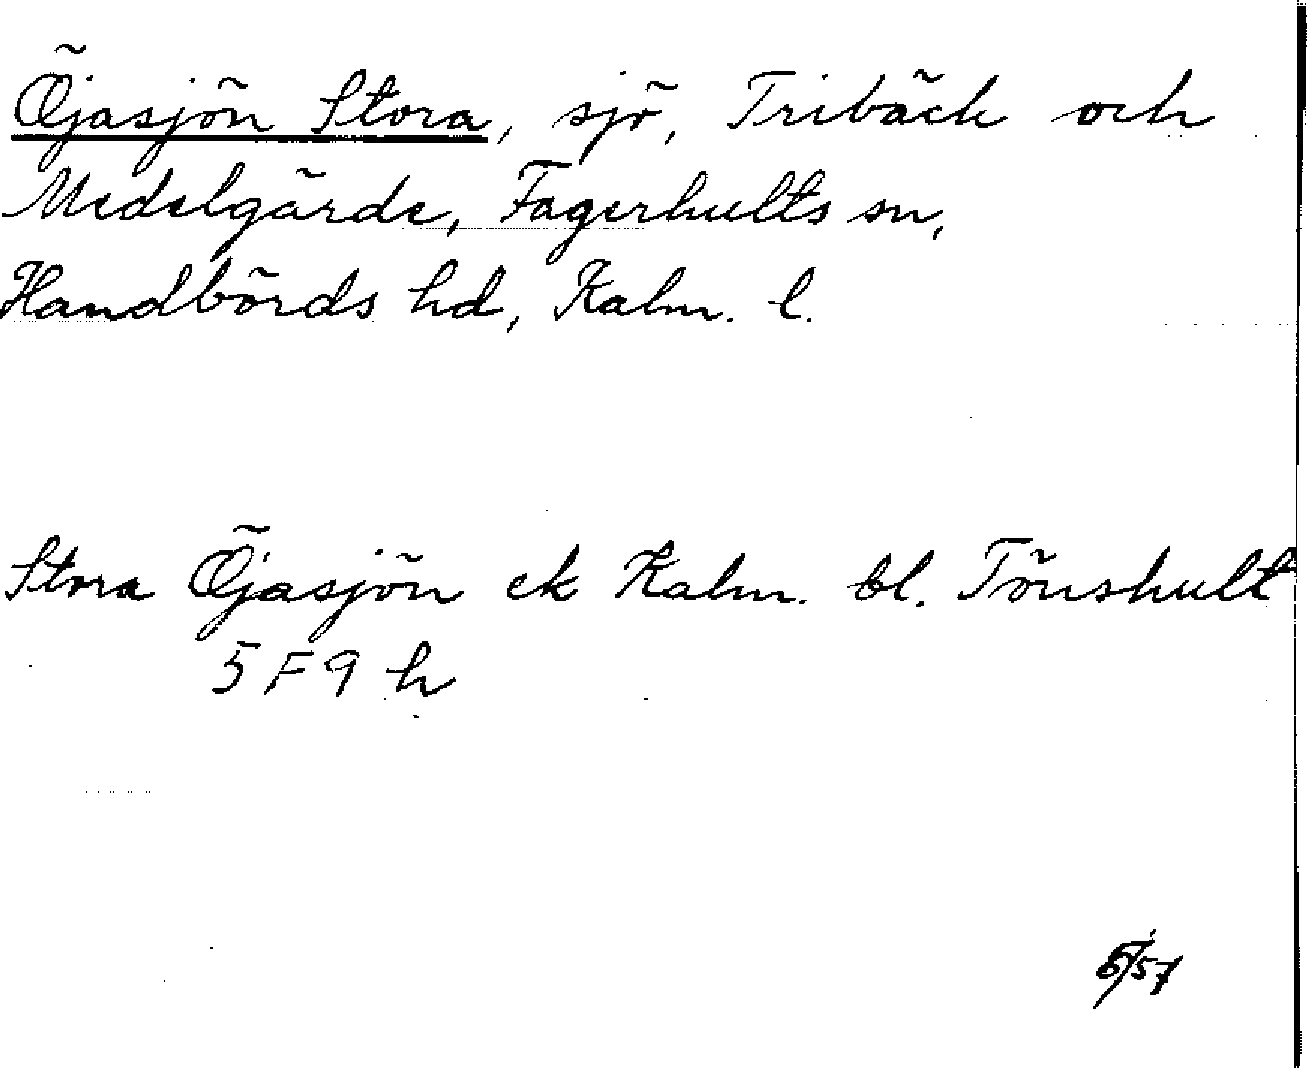 Öjasjön Stora, sjö, Tribäck och
Medelgärde, Fagerhults sn,
Handbörds hd, Kalm. l.
Stora Öjasjön ek Kalm. bl. Tönshult
5F9 h